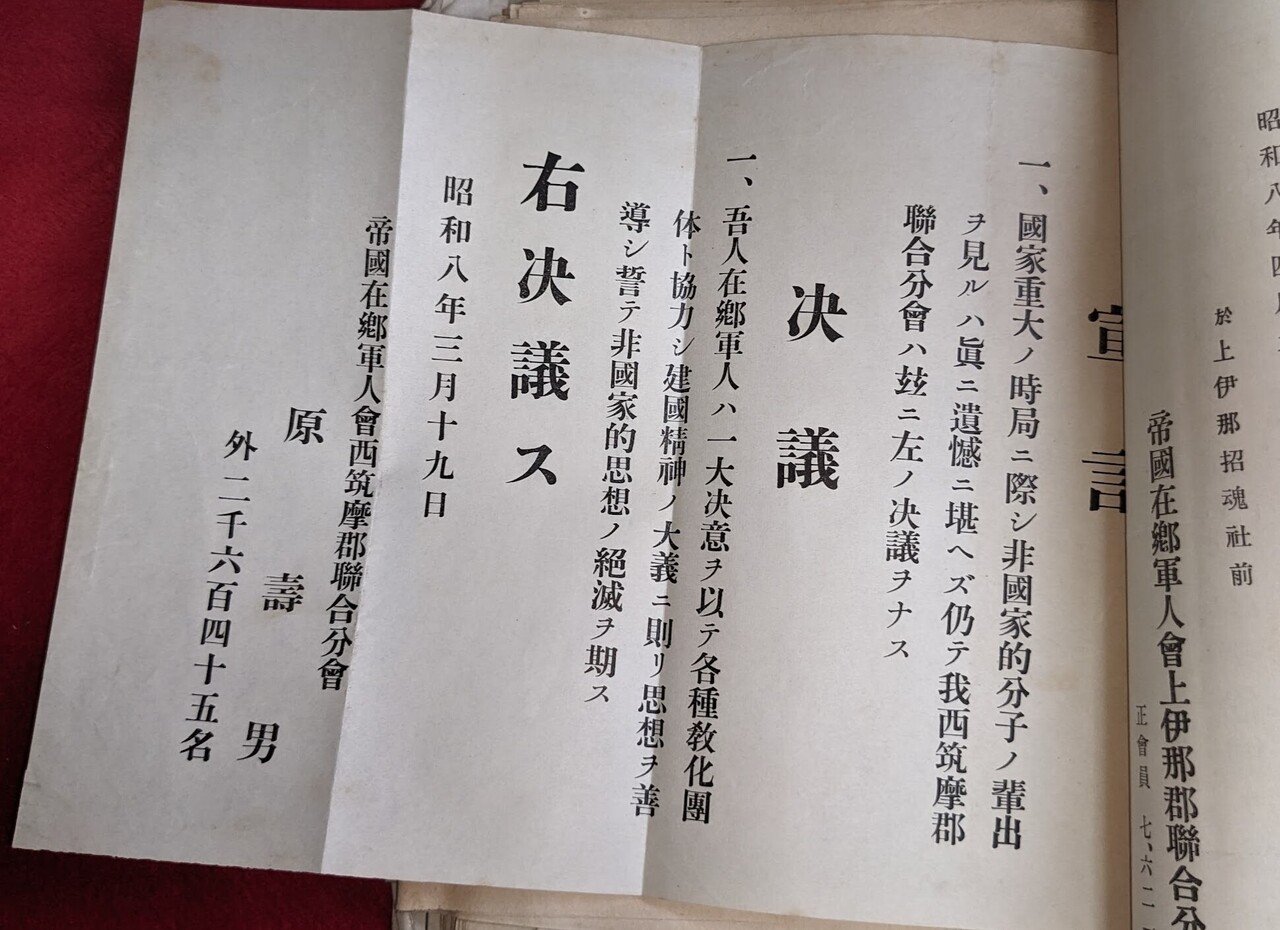 昭和八年四月
於上伊那招魂社前
帝國在鄕軍人會上伊那郡聯合分
正會員 七、六二
宣言
一、國家重大ノ時局ニ際シ非國家的分子ノ輩出
ヲ見ルハ眞ニ遺憾ニ堪ヘズ仍テ我西筑摩郡
聯合分會ハ玆ニ左ノ决議ヲナス
决議
一、吾人在鄕軍人ハ一大决意ヲ以テ各種敎化團
体ト協力シ建國精神ノ大義ニ則リ思想ヲ善
導シ誓テ非國家的思想ノ絕滅ヲ期ス
右决議ス
昭和八年三月十九日
帝國在鄕軍人會西筑摩郡聯合分會
原壽男
外二千六百四十五名